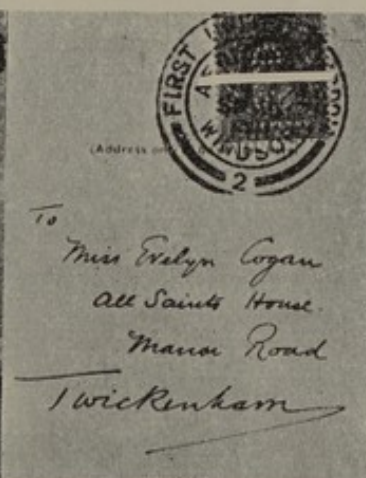 FIRST
WINDSOR
2
(Address
To
Miss Evelyn Cogan
All Saints House.
Manor Road
Twickenham